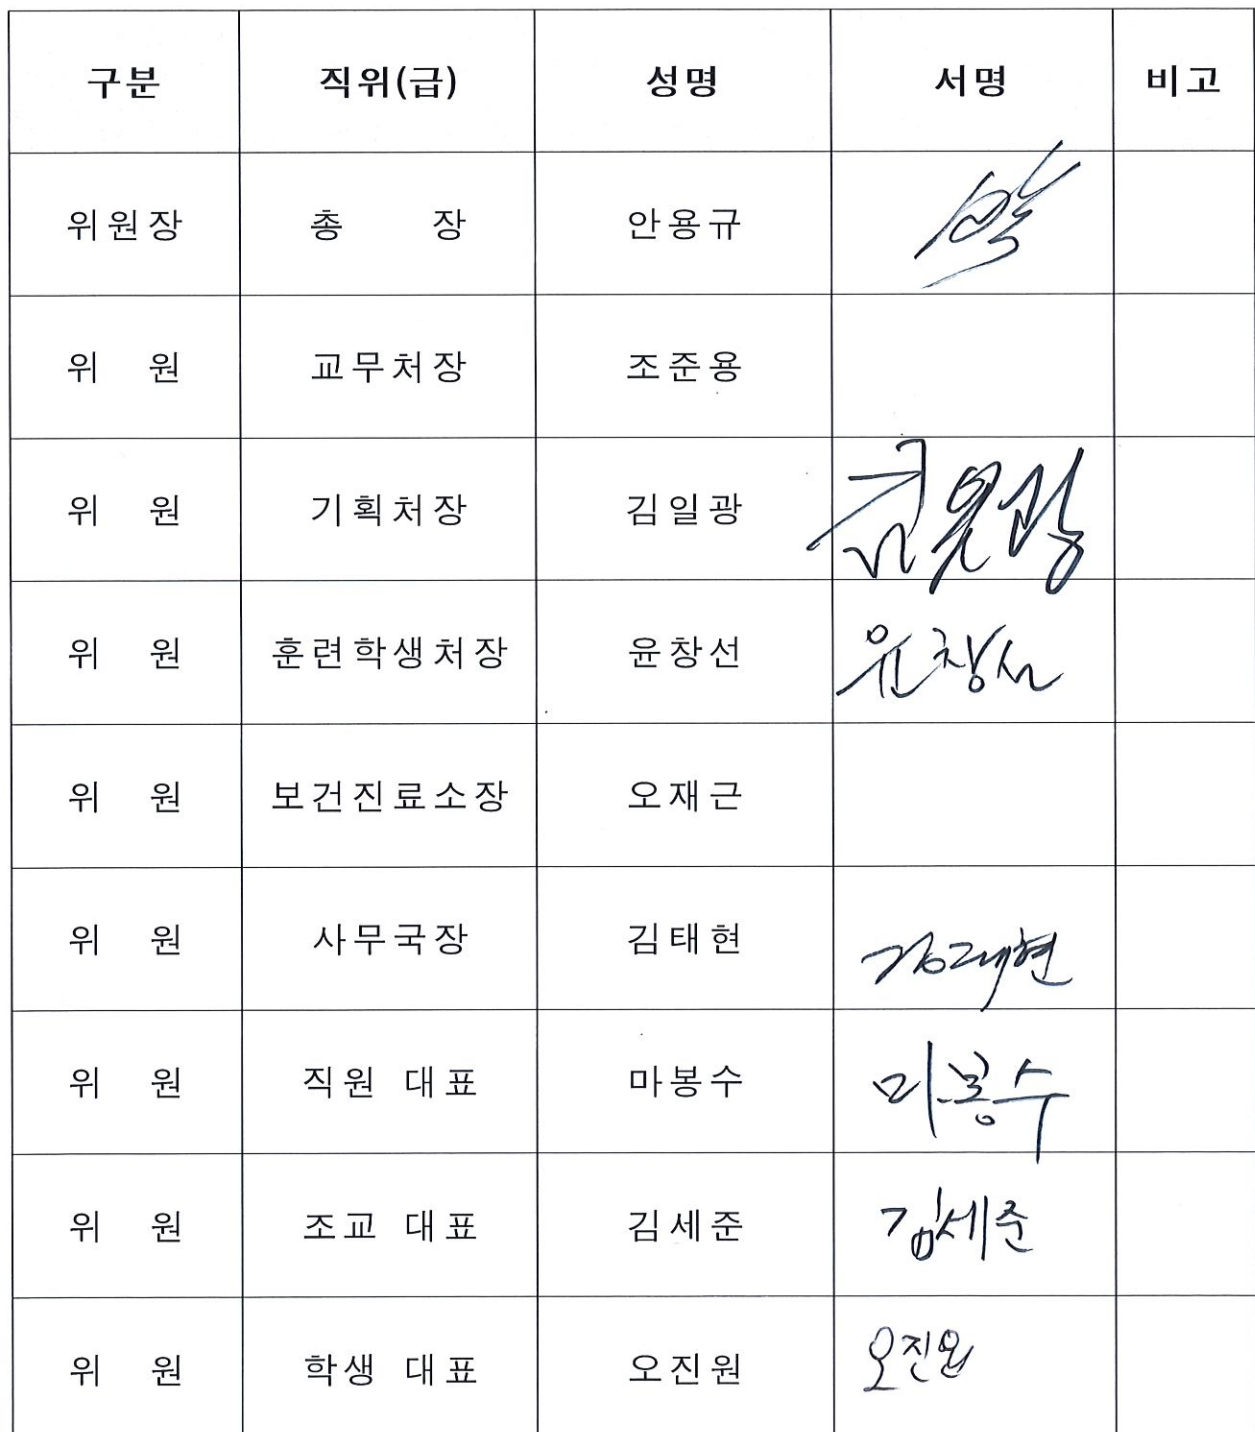 구분 직위(급) 성명 서명 비고
위원장 총 장 안용규
위 원 교무처장 조준용
위 원 기획처장 김일광 김일광
위 원 훈련학생처장 윤창선 윤창선
위 원 보건진료소장 오재근
위 원 사무국장 김태현 김태현
위 원 직원 대표 마봉수 마봉수
위 원 조교 대표 김세준 김세준
위 원 학생 대표 오진원 오진원